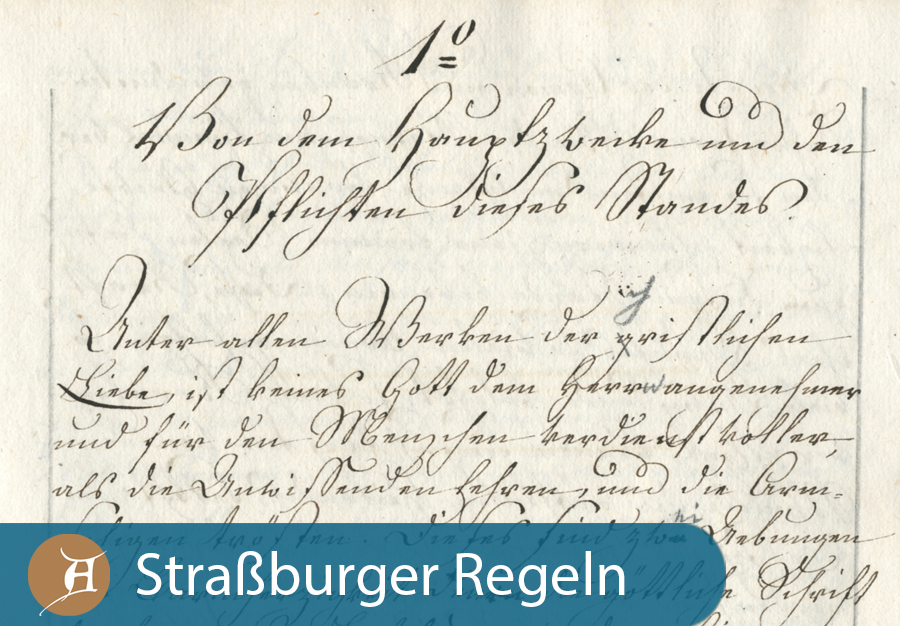 1º
Von dem Hauptzwecke und den
Pflichten dieses Standes.
Unter allen Werken der christlichen
Liebe, ist keines Gott dem Herrn angenehmer
und für den Menschen verdienstvoller,
als die Unwissenden lehren, und die Arm-
seligen trösten. Dieses sind zwei Uebungen
göttliche Schrift
Straßburger Regeln